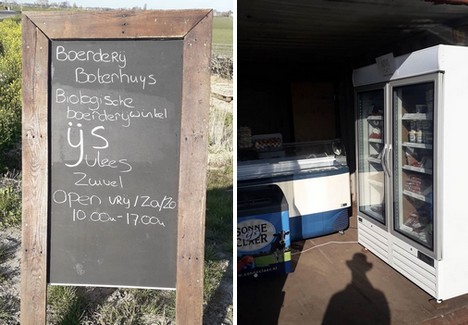 Boerderij
Boterhuys
Biologische
boerderijwinkel
ijs
Vlees
Zuivel
Open VRIJ/Za/Zo
10.00u-17.00u
BONNE